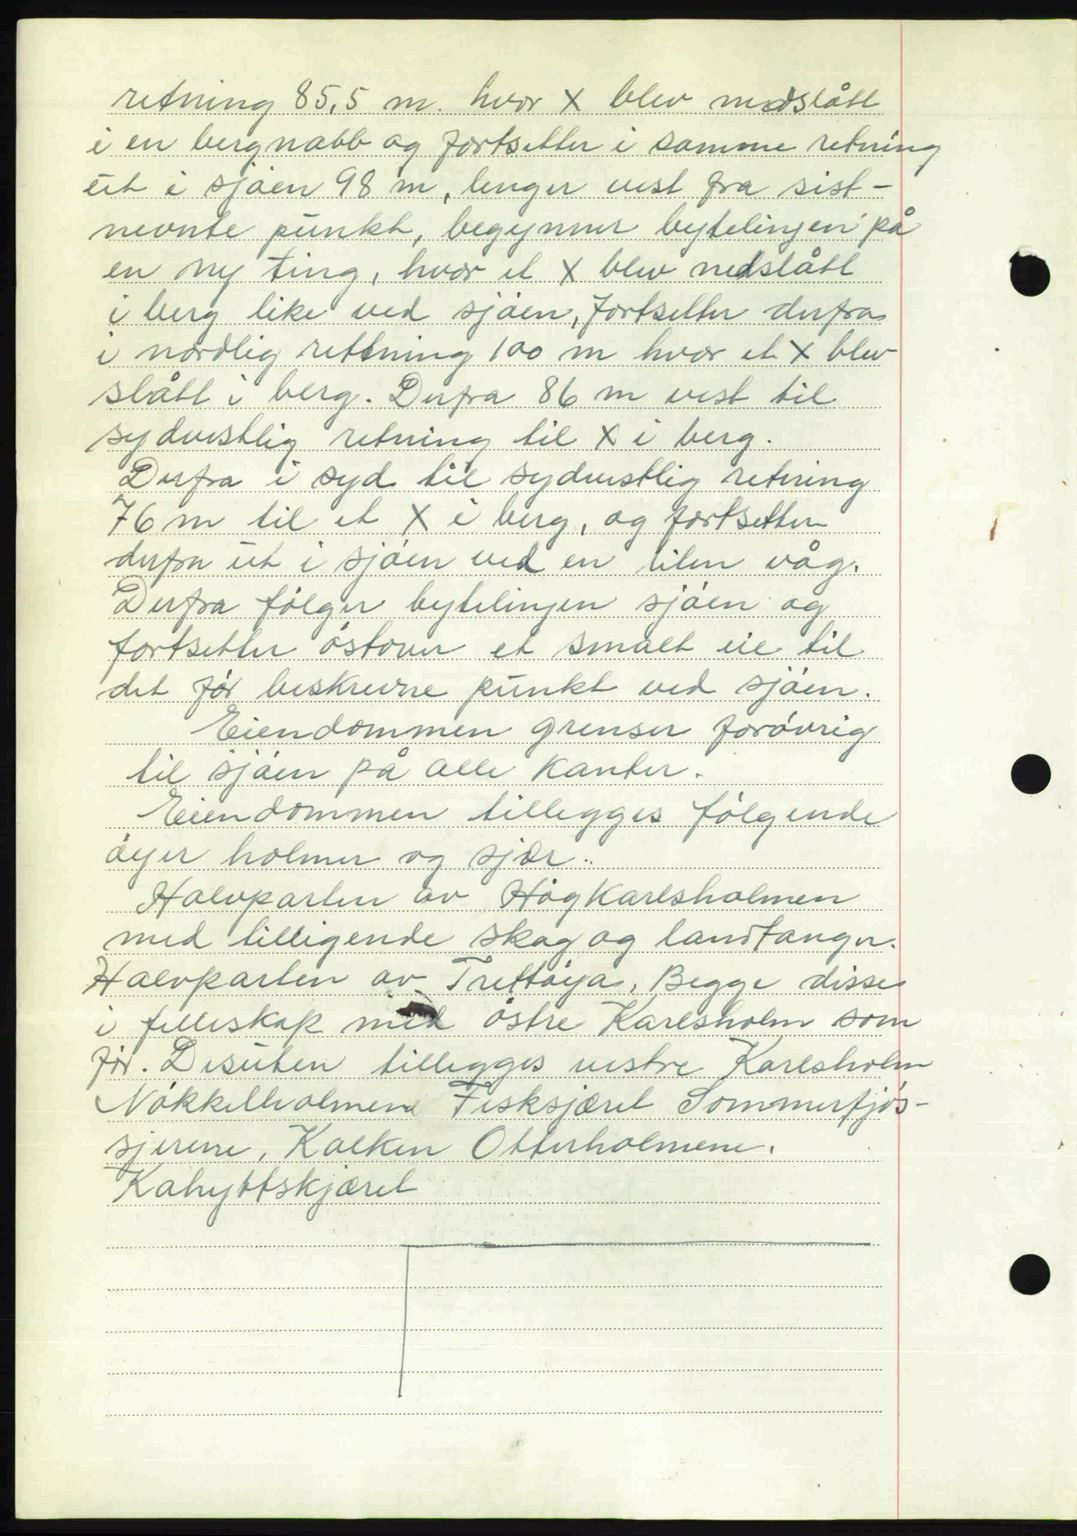 retning 85,5 m. hvor X blev nedslått
i en bergnabb og fortsetter i samme retning
ut i sjøen 98 m, lenger vest fra sist-
nevnte punkt, begynner bytelinjen på
en ny ting, hvor et X blev nedslått
i berg like ved sjøen, fortsetter derfra
i nordlig rettning 100 m hvor et X blev
slått i berg. Derfra 86 m vest til
sydvestlig retning til X i berg.
Derfra i syd til sydvestlig retning
76 m til et X i berg, og fortsetter
derfra ut i sjøen ved en liten våg.
Derfra følger bytelinjen sjøen og
fortsetter østover et smalt eie til
det før beskrevne punkt ved sjøen.
Eiendommen grenser forøvrig
til sjøen på alle kanter.
Eiendommen tillegges følgende
øyer holmer og sjær..
Halvparten av Høgkarlsholmen
med tilligende skog og landtanger.
Halvparten av Trettøya, Begge disse
i felleskap med østre Karlsholm som
før. Desuten tillegges vestre Karlsholm
Nøkkelholmene Fisksjæret Sommerfjøs-
sjerene, Kalken Otterholmene.
Kahyttskjæret